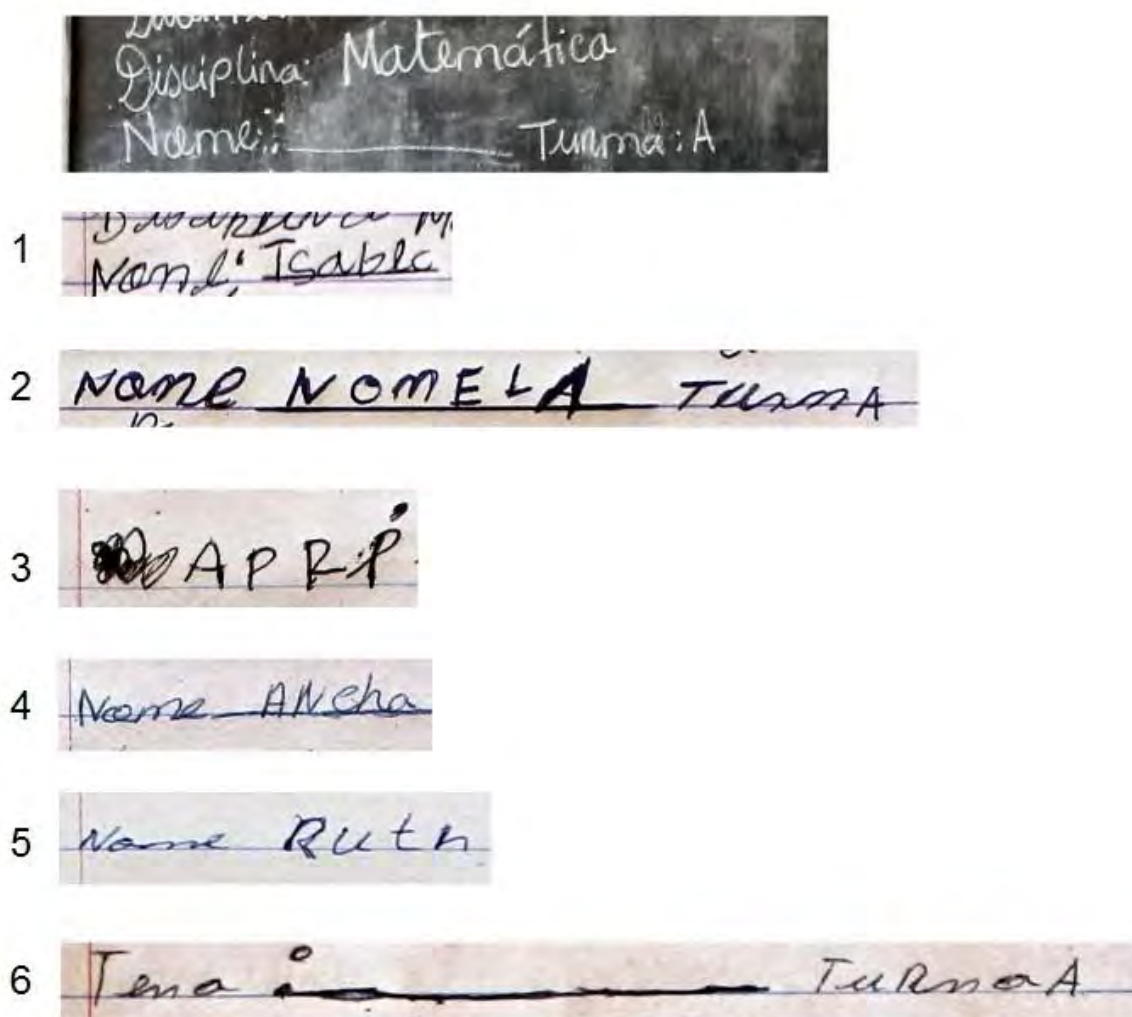 Disciplina: Matemática
Name: ____________ Turma: A
1
Disciplina M
Name: Isabel
2
Name NOMELA Turma A
3
APRP
4
Name ANcha
5
Name Ruth
6
Tema : ____________ TuRma A